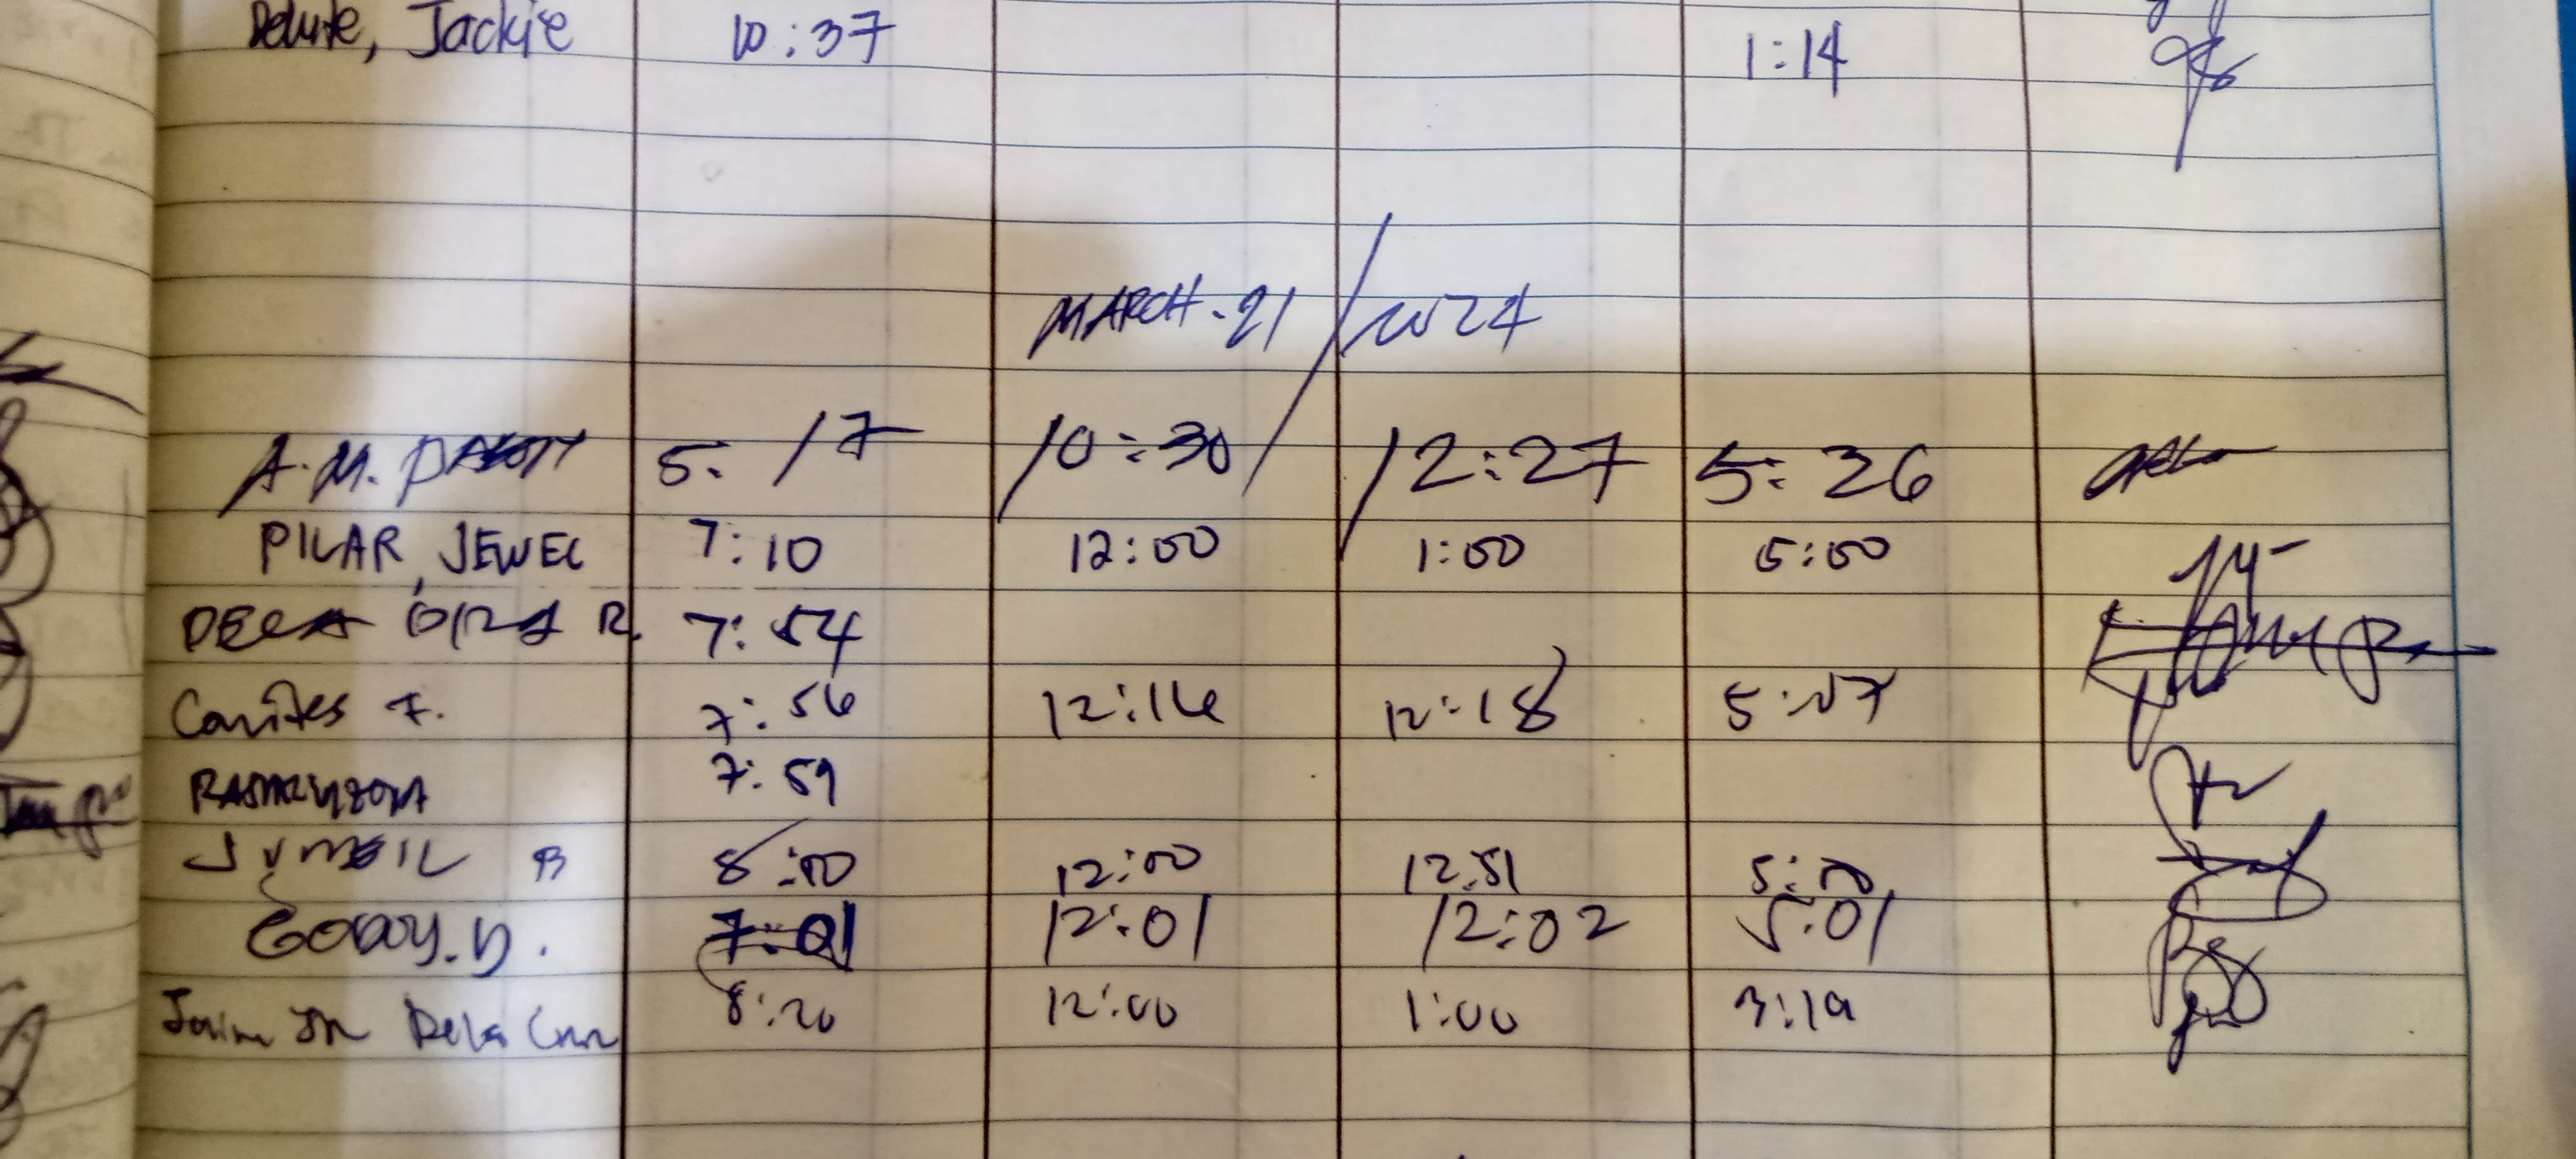 Jackie 10:37 1:14
MARCH-21/2024
A.M. 5:17 10:30 12:27 5:26
PILAR, JEWEL 7:10 12:00 1:00 5:00
DELA R. 7:54
Cavites F. 7:56 12:16 12:18 5:07
7:59
JUMEIL B 8:00 12:00 12:51 5:00
D. 7:01 12:01 12:02 5:01
Jaime JR Dela Cruz 8:20 12:00 1:00 3:19